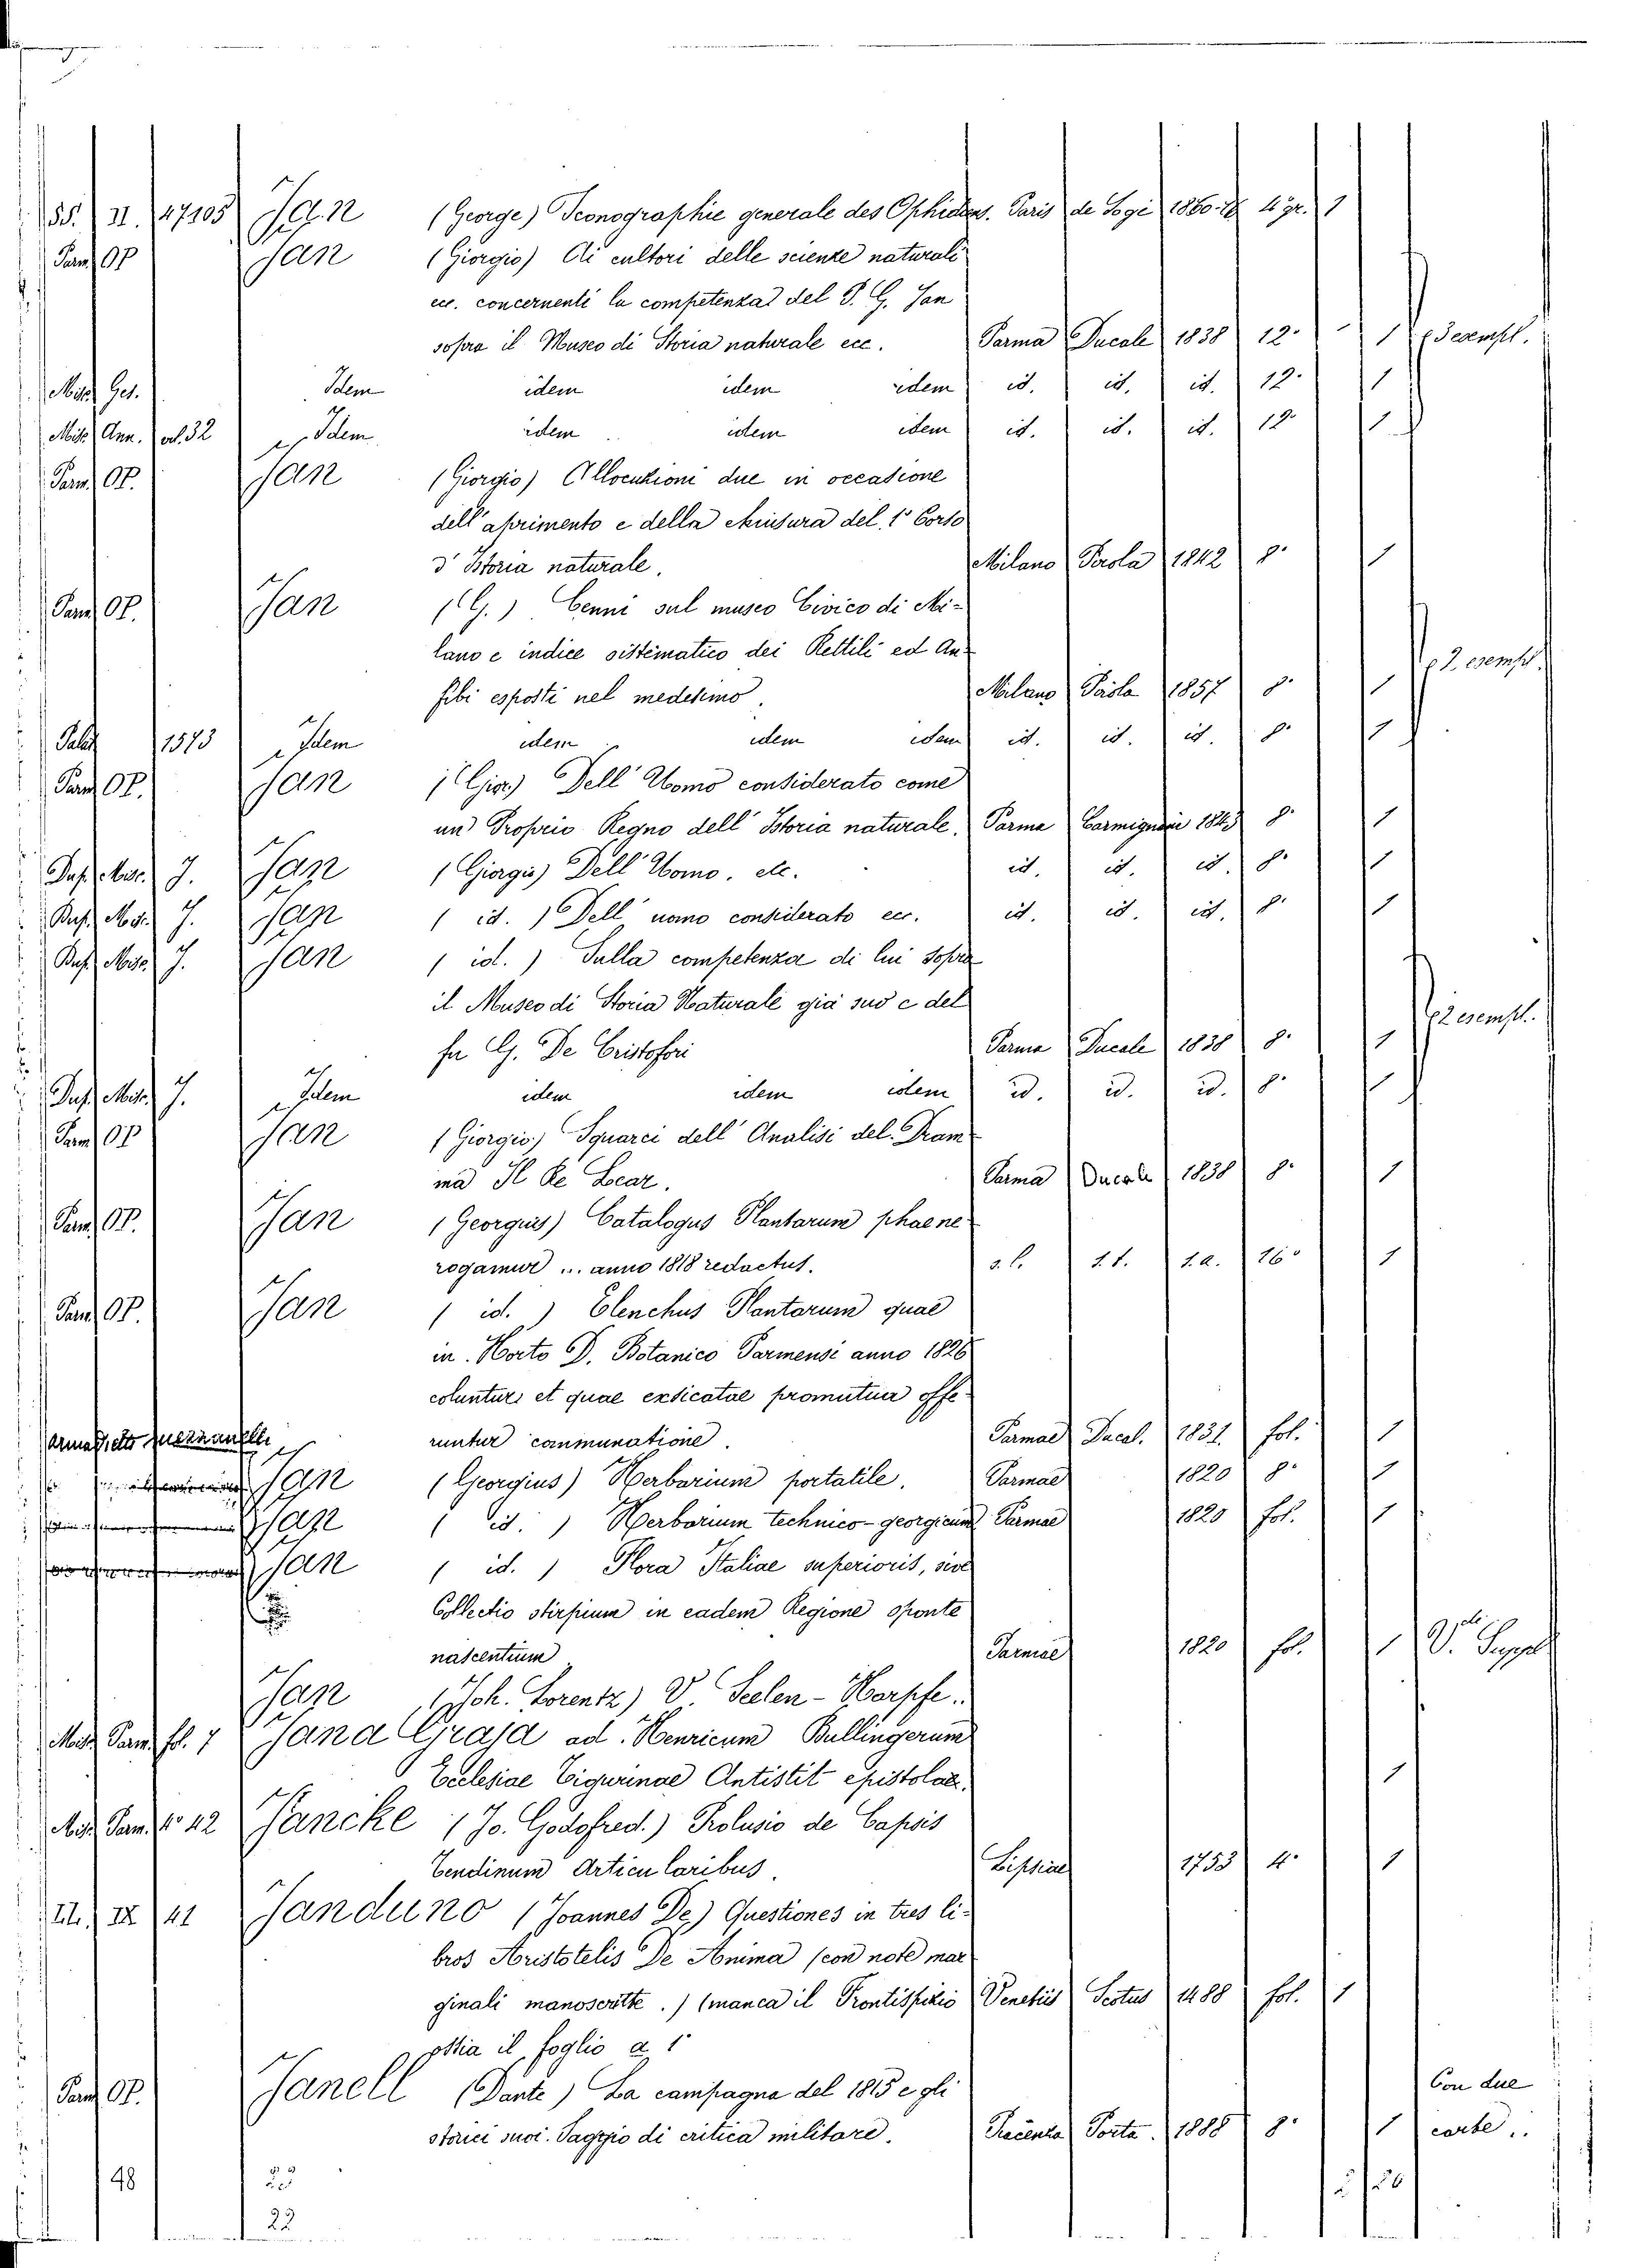 SS. II. 47105 Jan (George) Iconographie generale des Ophidiens. Paris de Sogi 1860-18 4 gr. 1
Parm. OP Jan (Giorgio) Ai cultori delle scienze naturali
ecc. concernenti la competenza del P. G. Jan
sopra il Museo di Storia naturale ecc. Parma Ducale 1838 12° 1 esempl.
Misc. Ges. Idem idem idem idem id. id. id. 12° 1
Misc. Ann. vol. 32 Idem idem idem idem id. id. id. 12° 1
Parm. OP. Jan (Giorgio) Allocuzioni due in occasione
dell'aprimento e della chiusura del 1° Corso
d'Istoria naturale. Milano Pirola 1842 8° 1
Parm. OP. Jan (G.) Cenni sul museo Civico di Mi-
lano e indice sistematico dei Rettili ed An-
fibi esposti nel medesimo. Milano Pirola 1857 8° 1 2 esempl.
Palat 11573 Idem idem idem idem id. id. id. 8° 1
Parm. OP. Jan (Gior.) Dell'Uomo considerato come
un Proprio Regno dell'Istoria naturale. Parma Carmignani 1843 8° 1
Misc. J. Jan (Giorgio) Dell'Uomo. etc. id. id. id. 8° 1
Misc. J. Jan ( id. ) Dell'uomo considerato ecc. id. id. id. 8° 1
Misc. J. Jan ( id. ) Sulla competenza di lui sopra
il Museo di Storia Naturale già suo e del
fu G. De Cristofori Parma Ducale 1838 8° 1 2 esempl.
Misc. J. Idem idem idem idem id. id. id. 8° 1
Parm. OP Jan (Giorgio) Squarci dell'Analisi del Dram-
ma Il Re Lear. Parma Ducale 1838 8° 1
Parm. OP. Jan (Georgius) Catalogus Plantarum phaene-
rogamur ... anno 1818 redactus. s. l. s. t. s. a. 16° 1
Parm. OP. Jan ( id. ) Elenchus Plantarum quae
in Horto D. Botanico Parmensi anno 1826
coluntur et quae exsicatae promutua offe-
runtur communatione. Parmae Ducal. 1831. fol. 1
Jan (Georgius) Herbarium portatile. Parmae 1820 8° 1
Jan ( id. ) Herbarium technico-georgicum Parmae 1820 fol. 1
Jan ( id. ) Flora Italiae superioris, sive
Collectio stirpium in eadem Regione sponte
nascentium Parmae 1820 fol. 1 V. Suppl.
Jan (Joh. Lorentz) V. Seelen-Harpfe.
Misc. Parm. fol. 7 Jana Graja ad. Henricum Bullingerum
Ecclesiae Tigurinae Antistit epistolae. 1
Misc. Parm. 4° 42 Jancke (Jo. Godofred.) Prolusio de Capsis
Tendinum Articularibus. Lipsiae 1753 4° 1
IX 41 Janduno (Joannes De) Questiones in tres li-
bros Aristotelis De Anima (con note mar-
ginali manoscritte.) (manca il Frontispizio Venetiis Scotus 1488 fol. 1
ossia il foglio a 1
Parm. OP. Janell (Dante) La campagna del 1815 e gli Con due
storici suoi. Saggio di critica militare. Piacenza Porta. 1888 8° 1 carte.
48 25
22